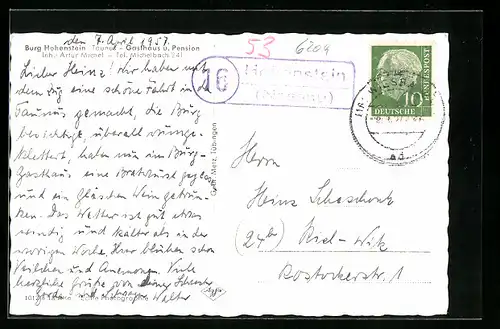 den 7. April 1957
Burg Hohenstein Taunus - Gasthaus u. Pension
Inh. Artur Mernel - Tel. Michelbach 241
Lieber Heinz! Wir haben mit
dem Zug eine schöne Fahrt in den
Taunus gemacht, die Burg
besichtigt, überall rumge-
klettert, haben nun im Burg-
gasthaus eine Bratwurst gegessen
und ein Gläschen Wein getrun-
ken. Das Wetter ist gut etwas
windig und kälter als in der
vorigen Woche. Hier blühen schon
Veilchen und Anemonen. Viele
herzliche Grüße von deiner Schwester
Gerda und Schwager Walter
Gebr. Metz, Tübingen
53
6209
16
Hohenstein
(Nassau)
DEUTSCHE
BUNDESPOST
10
Herrn
Heinz
(24b) Kiel-Wik
Rostockerstr. 1
Agfa